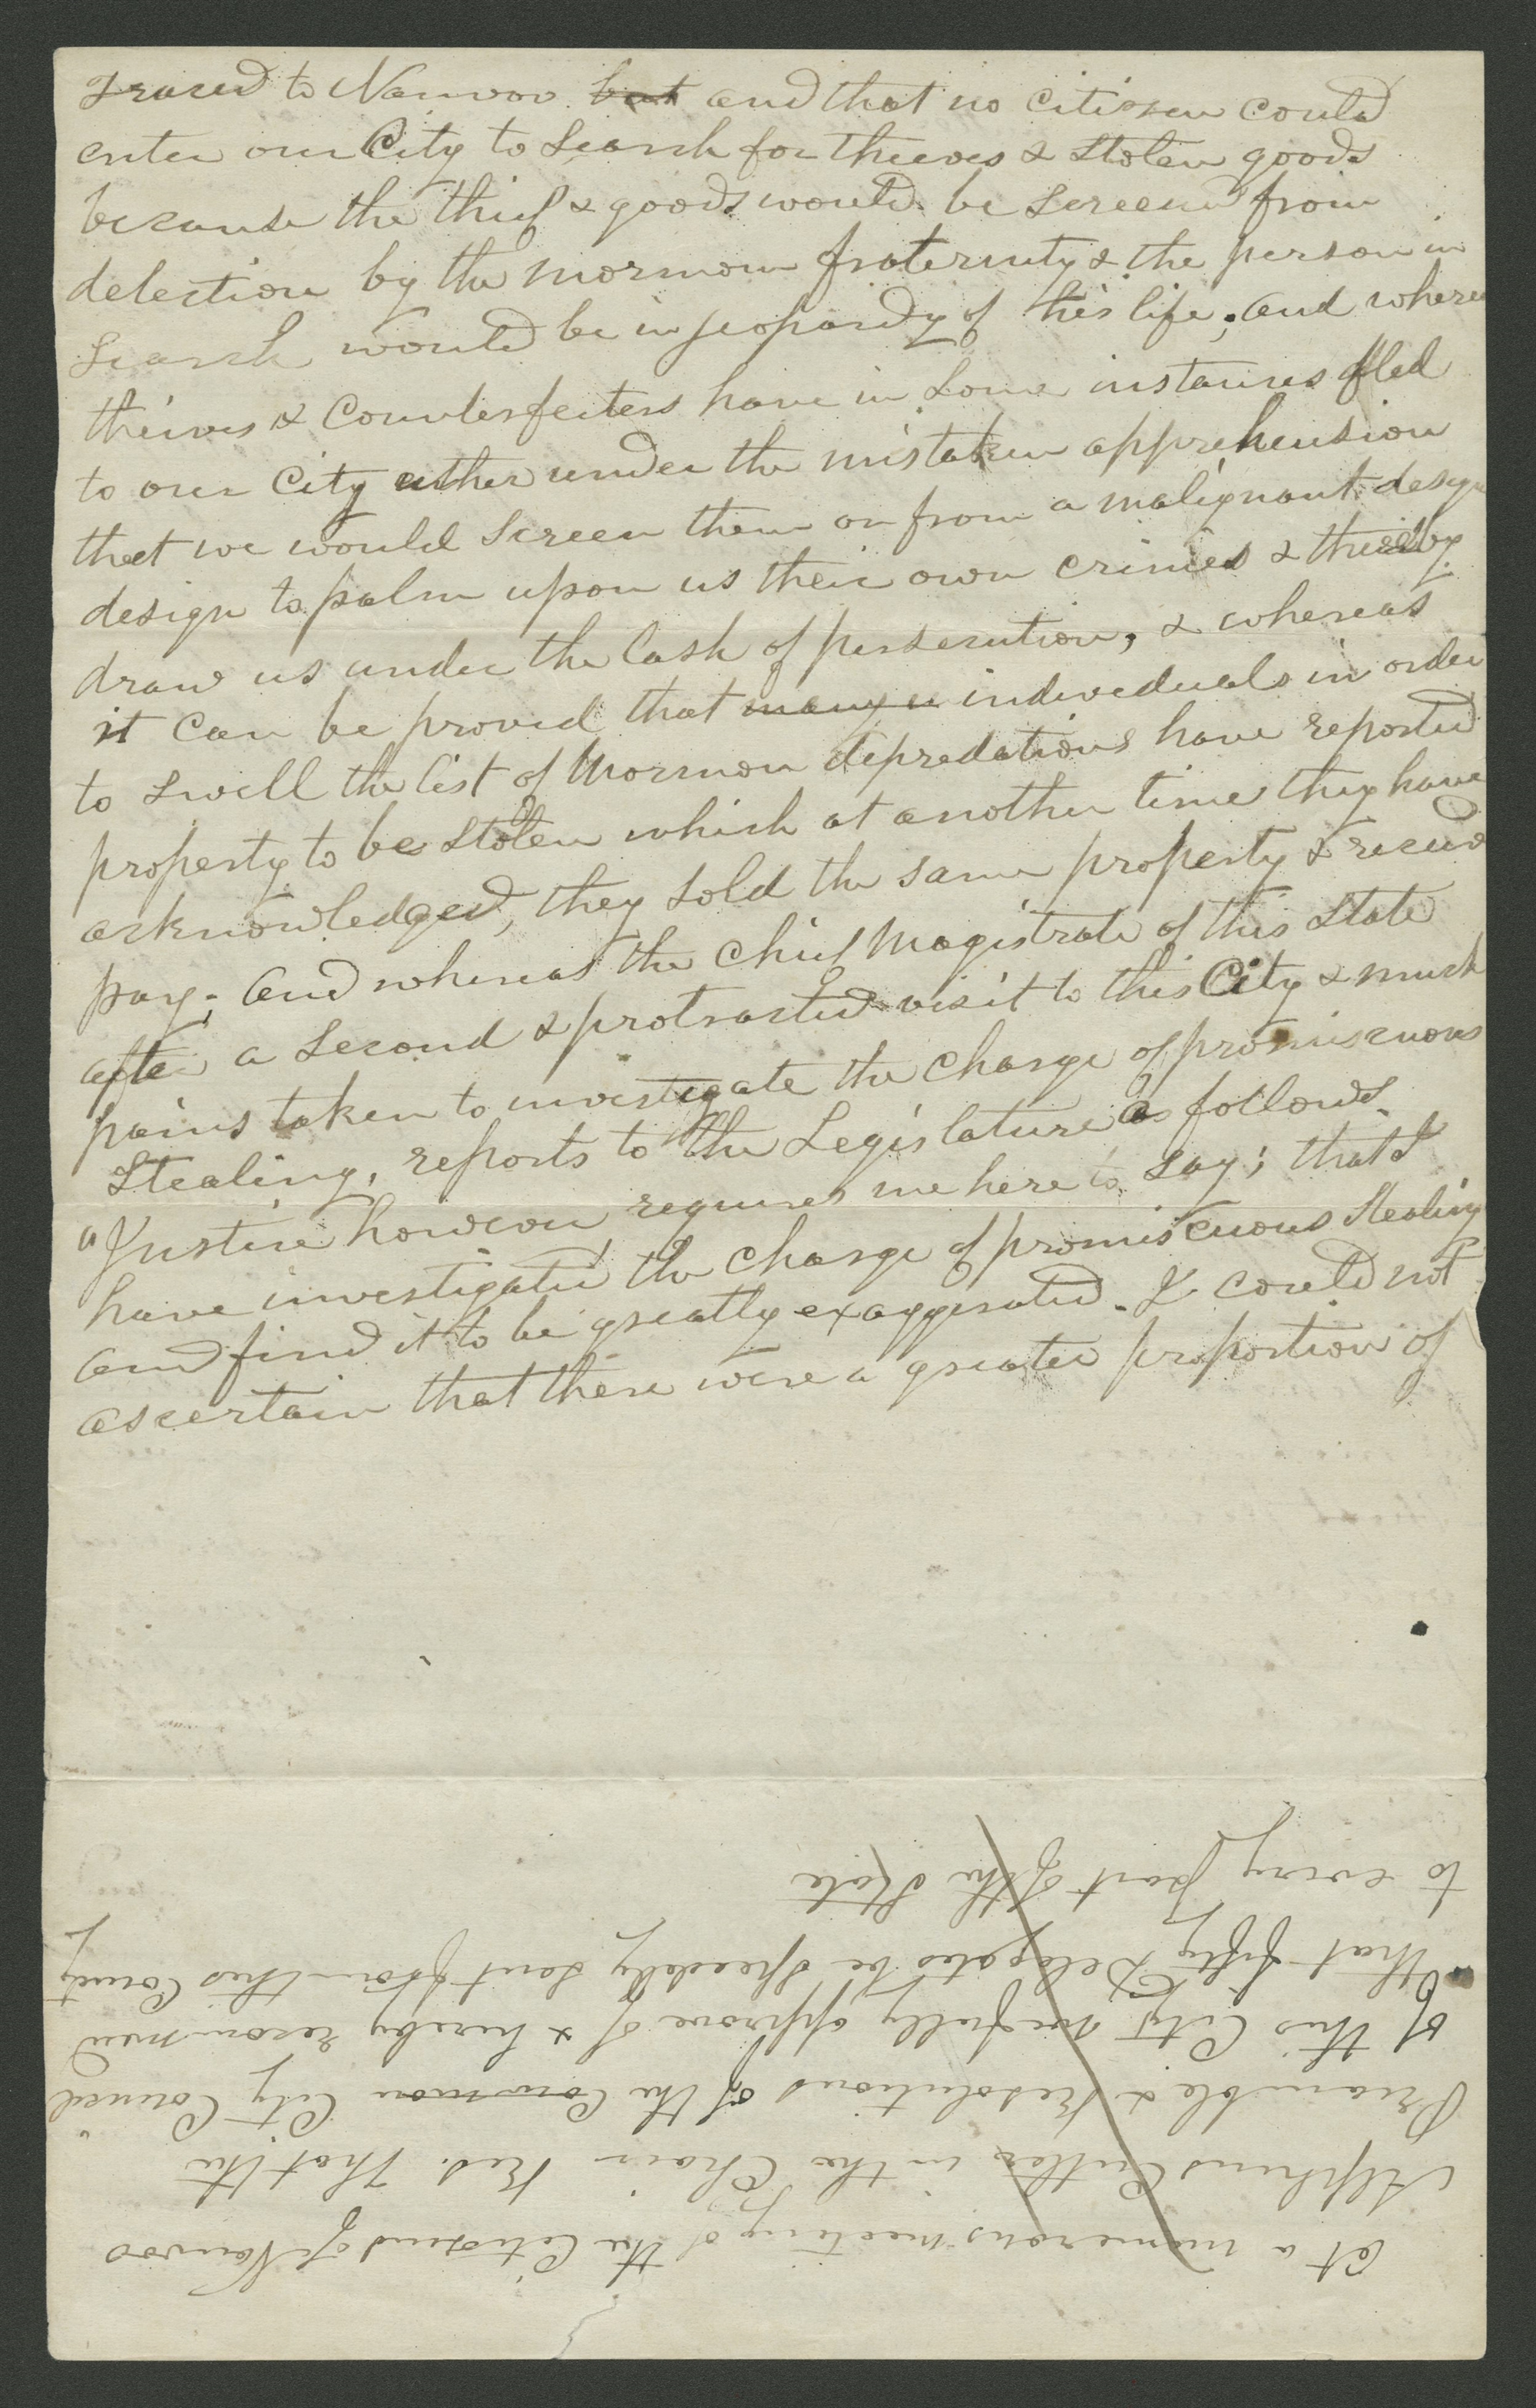 traced to Nauvoo but and that no citizen could
enter our City to Search for thieves & Stolen goods
because the thief & goods would be screened from
detection by the mormon fraternity & the person in
Search would be in jeopardy of his life; and whereas
theives & Counterfeiters have in Some instances fled
to our City either under the mistaken apprehension
that we would Screen them or from a malignant design
design to palm upon us their own crimes & thereby
draw us under the lash of persecution, & whereas
it can be proved that many individuals in order
to swell the list of Mormon depredations have reported
property to be Stolen which at another time they have
acknowledged, they sold the same property & received
pay; And whereas the Chief Magistrate of this State
after a Second & protracted visit to this City & much
pains taken to investigate the charge of promiscuous
Stealing, reports to the Legislature as follows.
"Justice however requires me here to say; that I
have investigated the charge of promiscuous Stealing
and find it to be greatly exaggerated. I could not
ascertain that there were a greater proportion of
At a numerous meeting of the Citizens of Nauvoo
Alpheus Cutler in the Chair Res. That the
Preamble & Resolutions of the Common City Council
of this City fully approve of & hereby recommend
that fifty Delegates be speedily sent from this County
to every part of the State